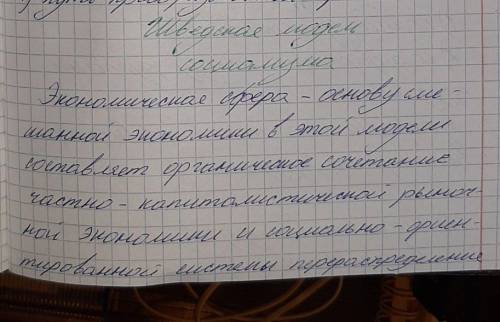 Шведская модель
социализма
Экономическая сфера - основу сме-
шанной экономики в этой модели
составляет органическое сочетание
частно - капиталистической рыноч-
ной экономики и социально - ориен-
тированной системы перераспределение